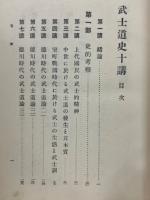 武士道史十講
目次
第一部 史的考察
第一講 緒論
第二講 上代國民の武士的精神
第三講 中世に於ける武士道の發生と其本質
第四講 室町戰國時代に於ける武士の生活と武士訓
第五講 德川時代の武士道論一
第六講 德川時代の武士道論二
第七講 德川時代の武士道論三
目次